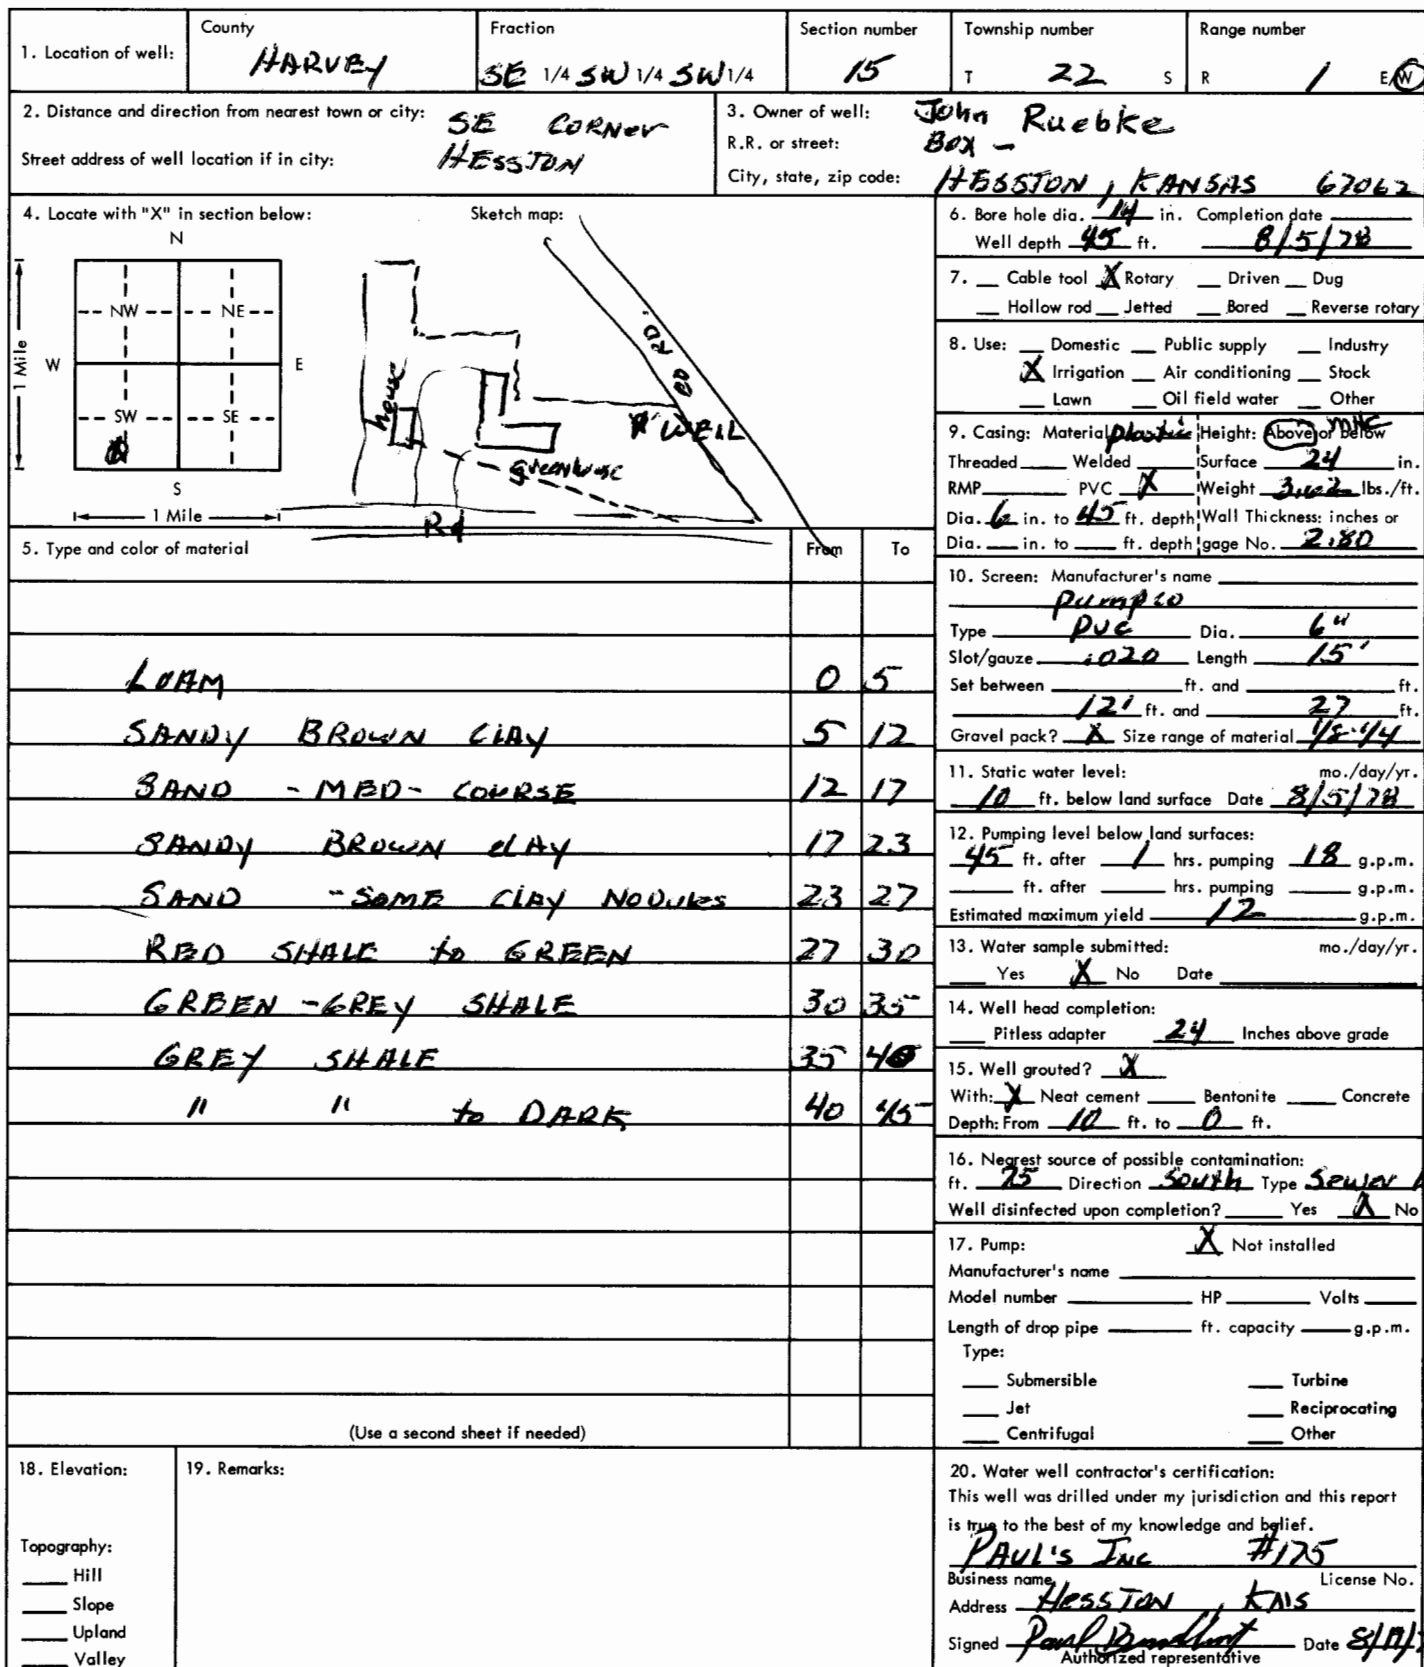 1. Location of well:
County
HARVEY
Fraction
SE 1/4 SW 1/4 SW 1/4
Section number
15
Township number
T 22 S
Range number
R 1 E/W
2. Distance and direction from nearest town or city: SE CORNER
Street address of well location if in city: HESSTON
3. Owner of well: John Ruebke
R.R. or street: BOX -
City, state, zip code: HESSTON, KANSAS 67062
4. Locate with "X" in section below:
N
NW NE
W E
SW SE
S
1 Mile
1 Mile
Sketch map:
CO RD.
house
WELL
Greenhouse
Rd
5. Type and color of material From To
LOAM 0 5
SANDY BROWN CLAY 5 12
SAND - MED - COURSE 12 17
SANDY BROWN CLAY 17 23
SAND - SOME CLAY NODULES 23 27
RED SHALE to GREEN 27 30
GREEN - GREY SHALE 30 35
GREY SHALE 35 40
" " to DARK 40 45
(Use a second sheet if needed)
6. Bore hole dia. 14 in. Completion date
Well depth 45 ft. 8/5/78
7. Cable tool X Rotary Driven Dug
Hollow rod Jetted Bored Reverse rotary
8. Use: Domestic Public supply Industry
X Irrigation Air conditioning Stock
Lawn Oil field water Other
9. Casing: Material plastic Height: Above or below
Threaded Welded Surface 24 in.
RMP PVC X Weight lbs./ft.
Dia. 6 in. to 45 ft. depth Wall Thickness: inches or
Dia. in. to ft. depth gage No. 2.80
10. Screen: Manufacturer's name
Pumpco
Type PVC Dia. 6"
Slot/gauze .020 Length 15'
Set between ft. and ft.
12' ft. and 27 ft.
Gravel pack? X Size range of material 1/8-1/4
11. Static water level: mo./day/yr.
10 ft. below land surface Date 8/5/78
12. Pumping level below land surfaces:
45 ft. after 1 hrs. pumping 18 g.p.m.
ft. after hrs. pumping g.p.m.
Estimated maximum yield 12 g.p.m.
13. Water sample submitted: mo./day/yr.
Yes X No Date
14. Well head completion:
Pitless adapter 24 Inches above grade
15. Well grouted? X
With: X Neat cement Bentonite Concrete
Depth: From 10 ft. to 0 ft.
16. Nearest source of possible contamination:
ft. 75 Direction South Type Sewer
Well disinfected upon completion? Yes X No
17. Pump: X Not installed
Manufacturer's name
Model number HP Volts
Length of drop pipe ft. capacity g.p.m.
Type:
Submersible Turbine
Jet Reciprocating
Centrifugal Other
18. Elevation:
Topography:
Hill
Slope
Upland
Valley
19. Remarks:
20. Water well contractor's certification:
This well was drilled under my jurisdiction and this report
is true to the best of my knowledge and belief.
PAUL'S INC #175
Business name License No.
Address HESSTON, KNS
Signed Paul Date
Authorized representative